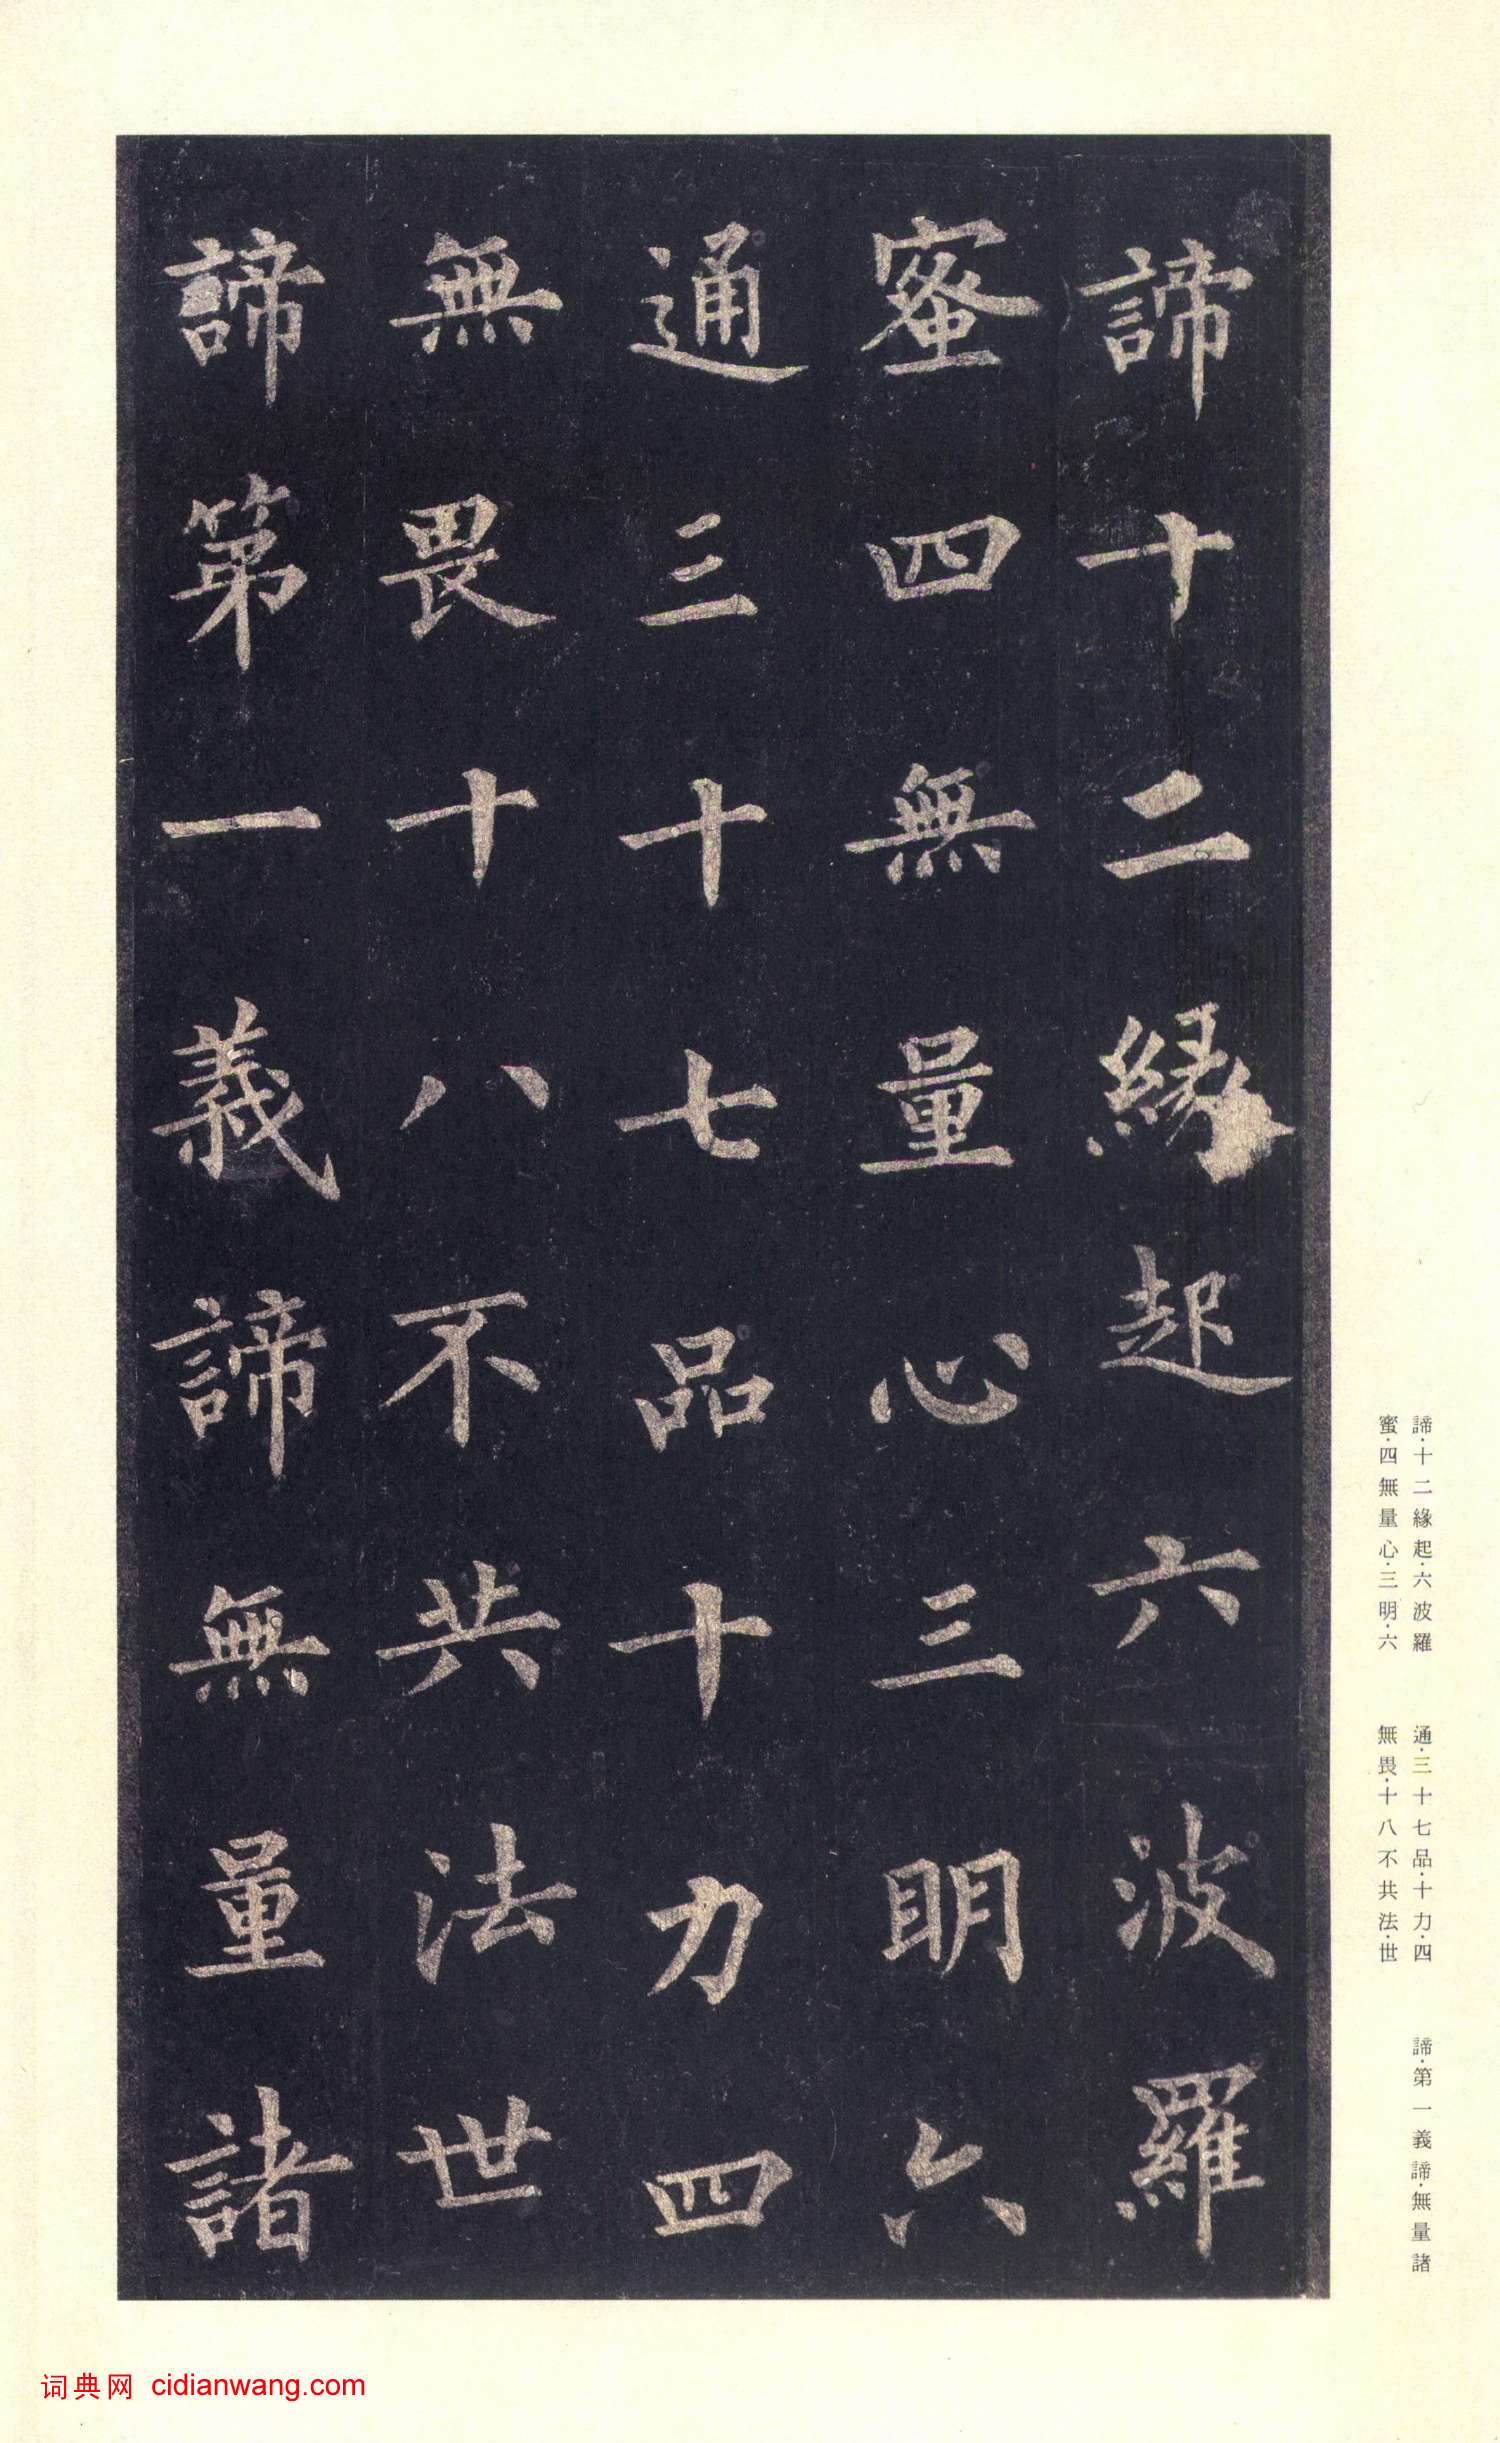 諦十二緣起六波羅
蜜四無量心三明六
通三十七品十力四
無畏十八不共法世
諦第一義諦無量諸
諦·十二緣起·六波羅
蜜·四無量心·三明·六
通·三十七品·十力·四
無畏·十八不共法·世
諦·第一義諦·無量諸
词典网 cidianwang.com